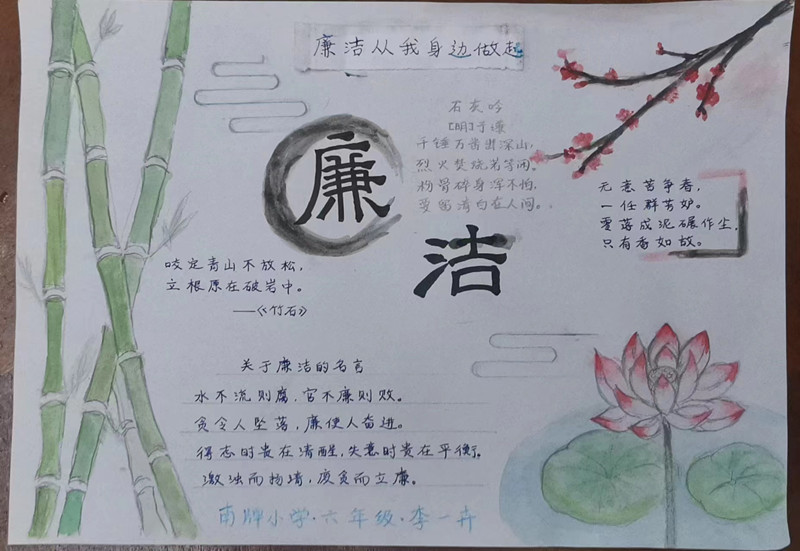 廉洁从我身边做起
廉
洁
石灰吟
[明]于谦
千锤万凿出深山,
烈火焚烧若等闲。
粉骨碎身浑不怕,
要留清白在人间。
无意苦争春,
一任群芳妒。
零落成泥碾作尘,
只有香如故。
咬定青山不放松,
立根原在破岩中。
——《竹石》
关于廉洁的名言
水不流则腐,官不廉则败。
贪令人坠落,廉使人奋进。
得志时贵在清醒,失意时贵在平衡。
激浊而扬清,废贪而立廉。
南牌小学·六年级·李一卉